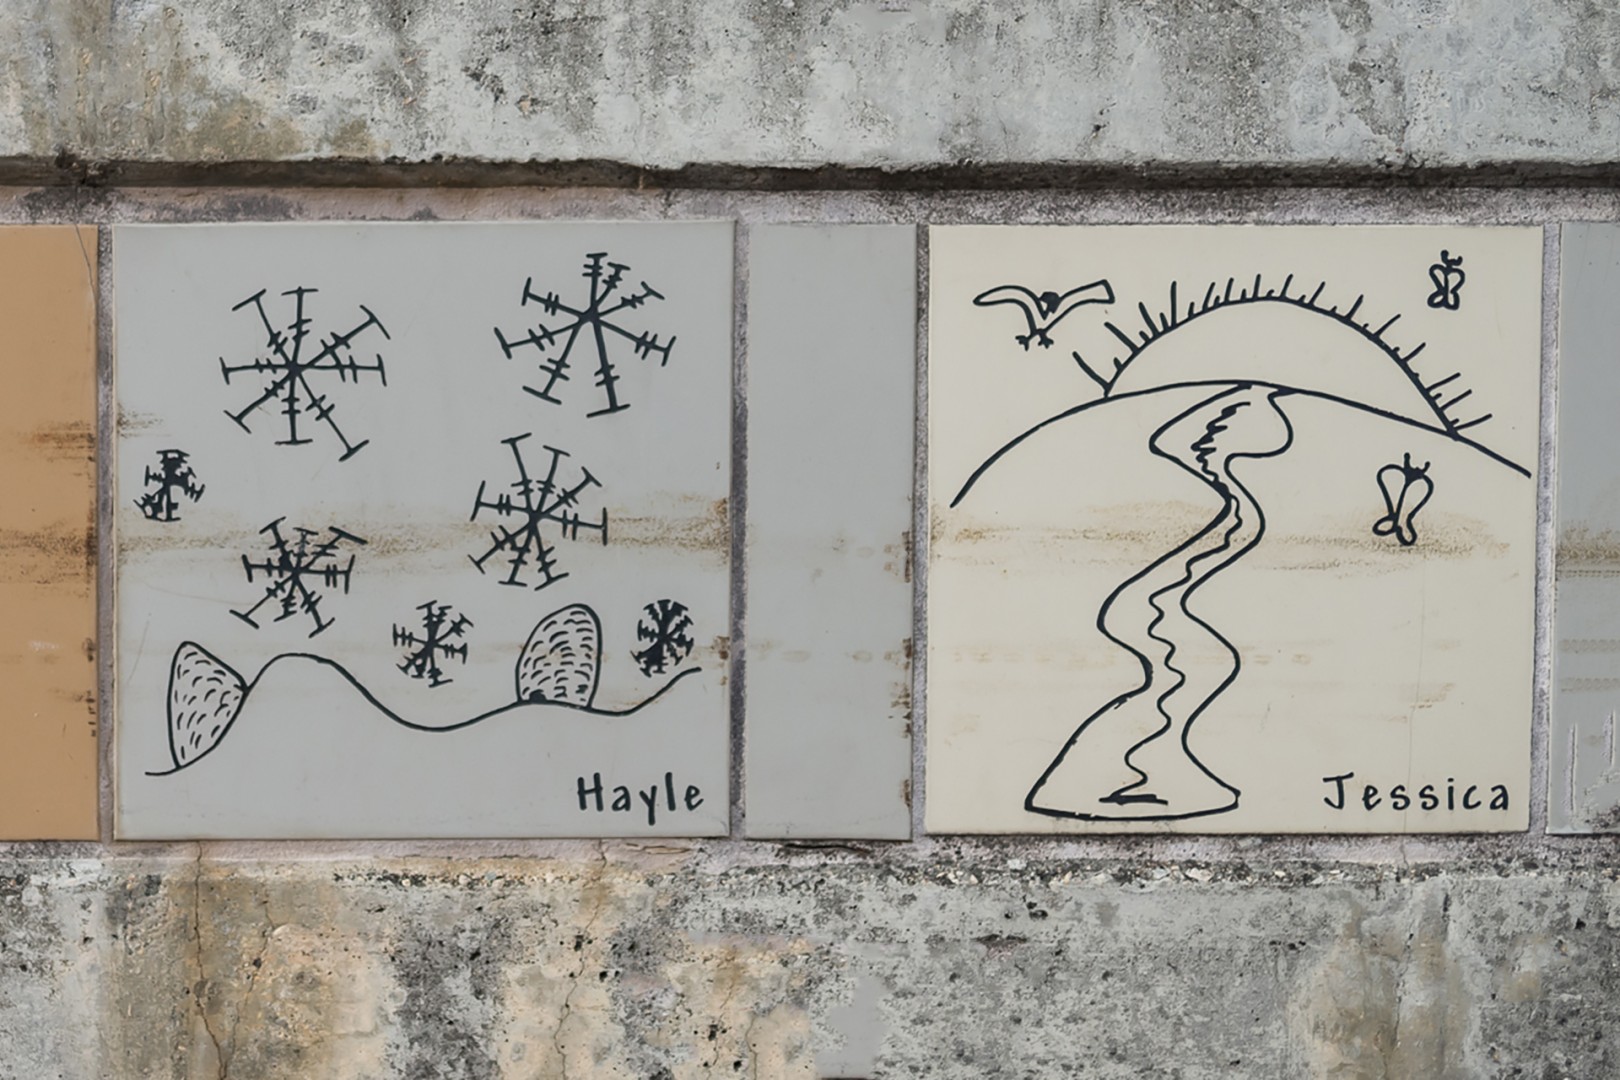 Hayle
Jessica